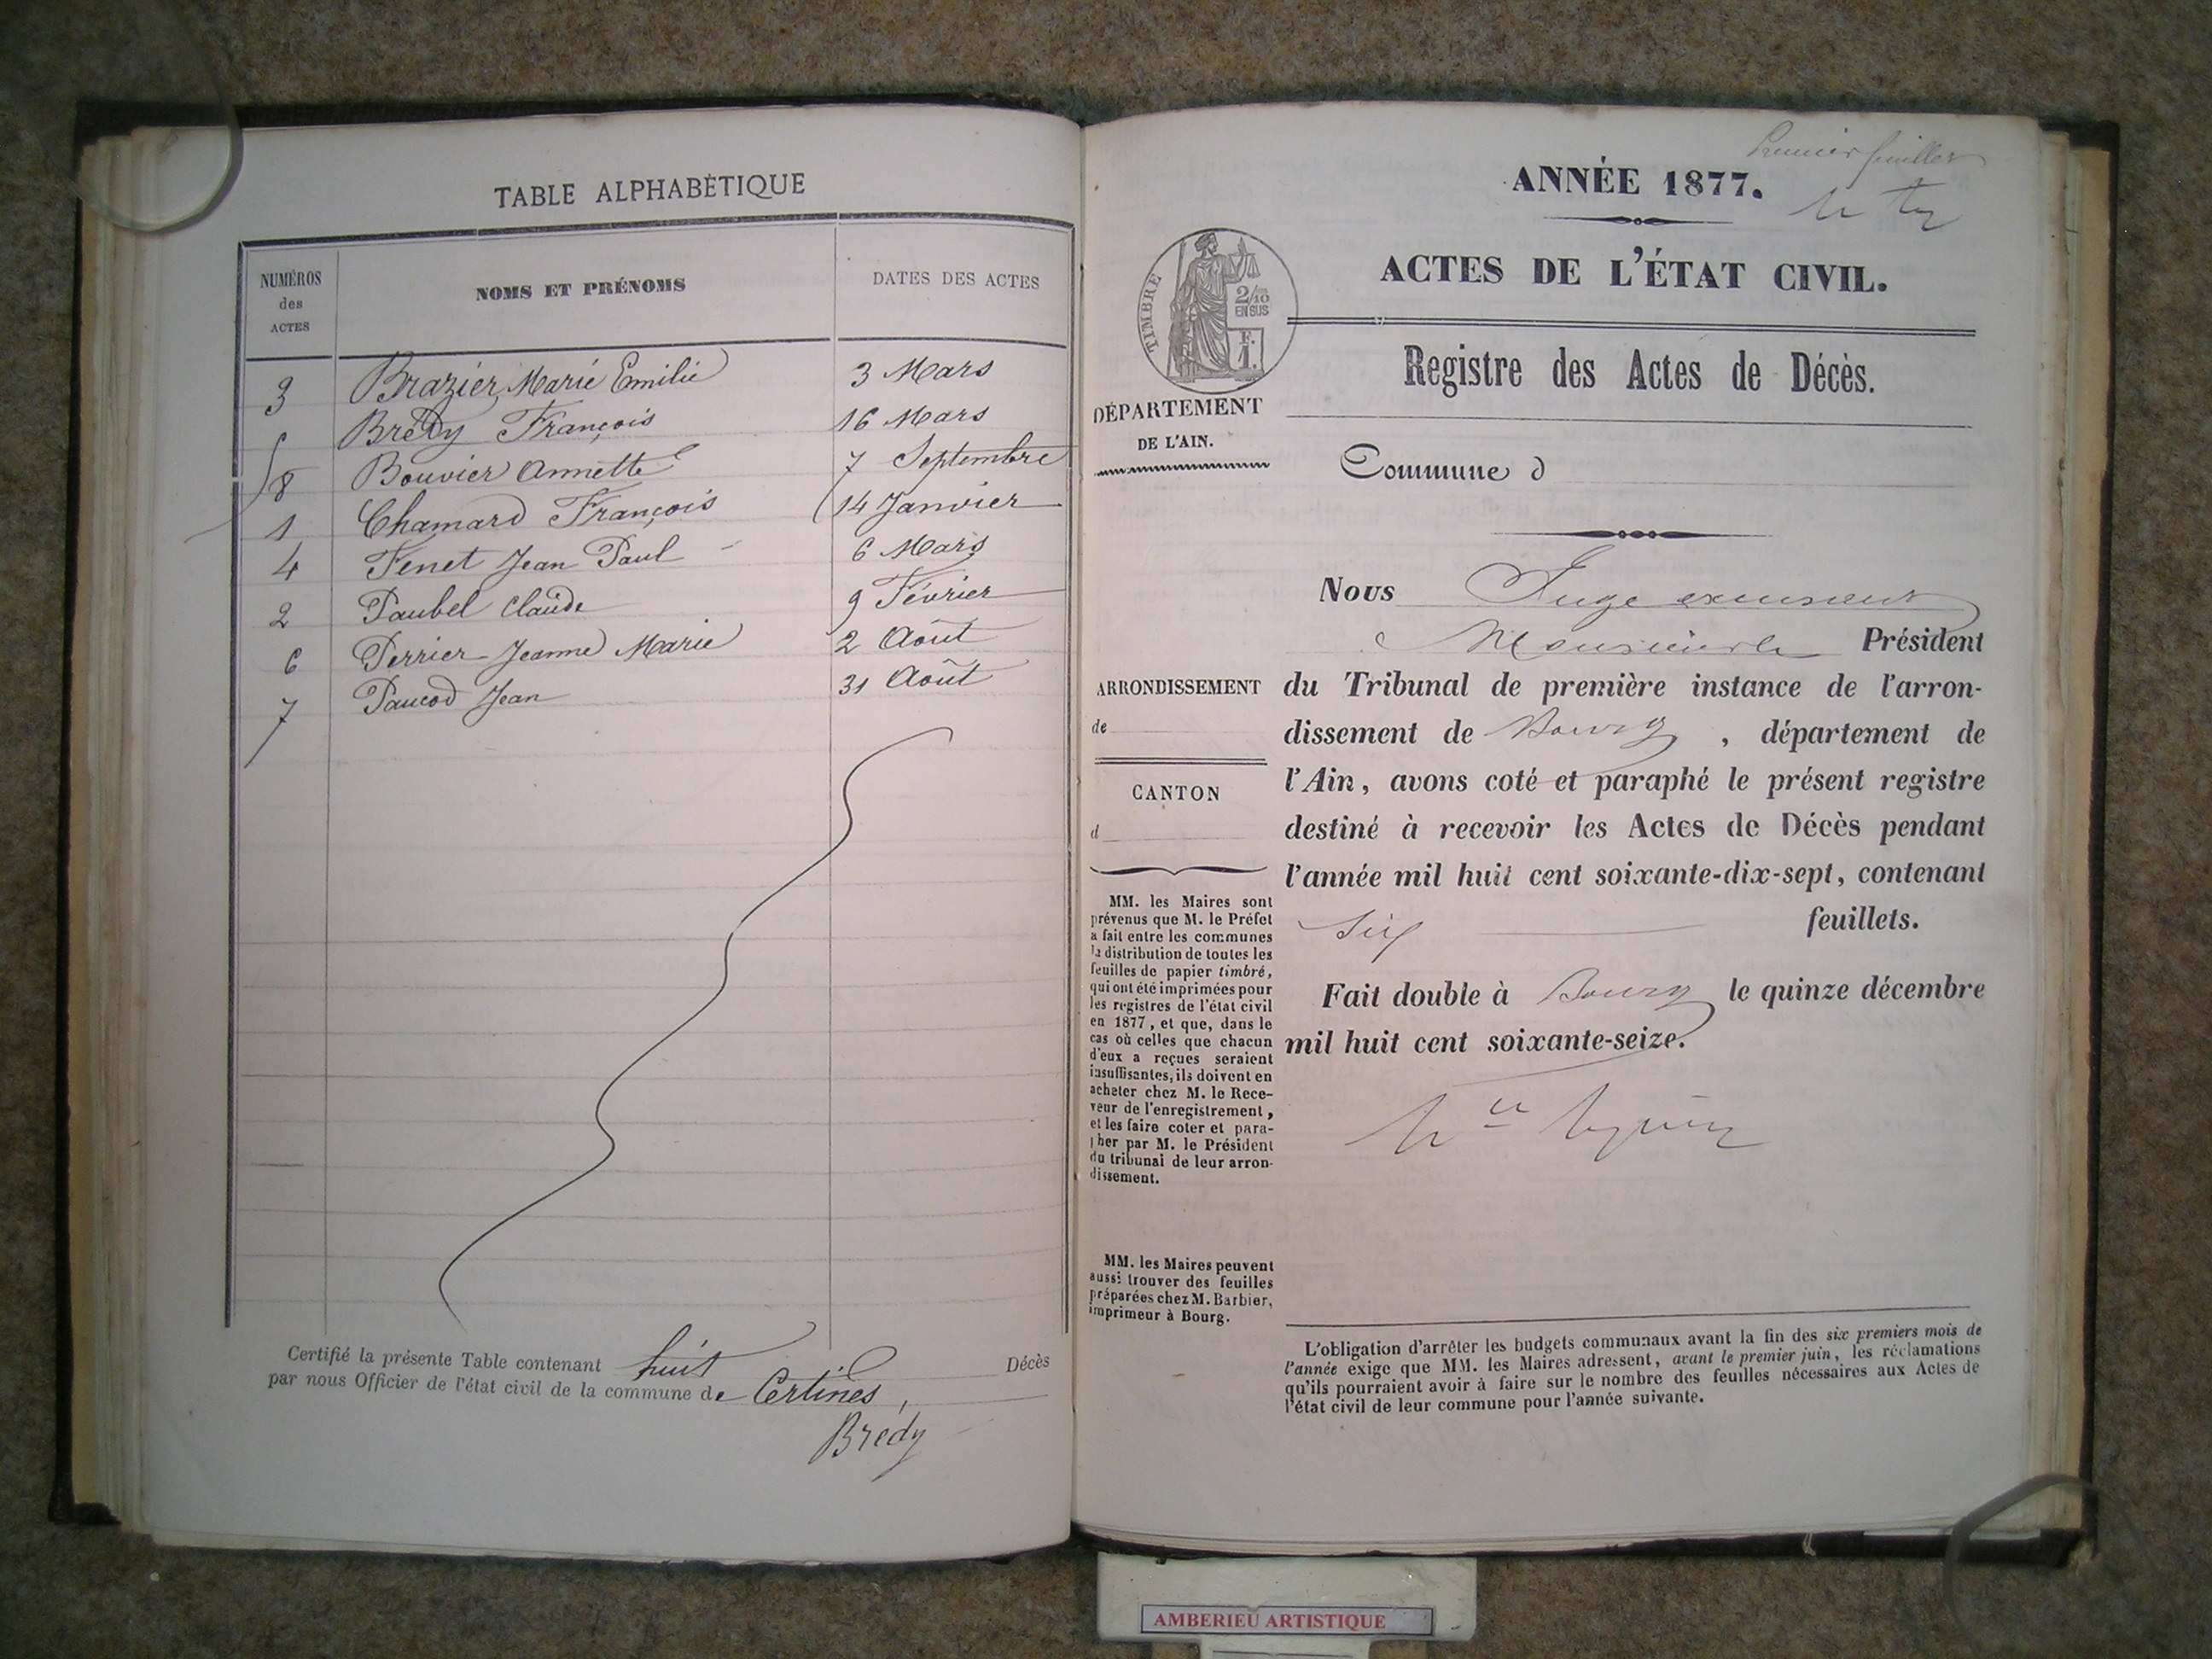 TABLE ALPHABÉTIQUE
NUMÉROS
des
ACTES
NOMS ET PRÉNOMS
DATES DES ACTES
3 Brazier Marie Emilie 3 Mars
5 Brédy François 16 Mars
8 Bouvier Annette 7 Septembre
1 Chamard François 14 Janvier
4 Fenet Jean Paul 6 Mars
2 Paubel Claude 9 Février
6 Perrier Jeanne Marie 2 Août
7 Paucod Jean 31 Août
Certifié la présente Table contenant huit Décès
par nous Officier de l'état civil de la commune de Certines,
Bredy
Premier feuillet
ANNÉE 1877.
ACTES DE L'ÉTAT CIVIL.
TIMBRE
2/10
EN SUS
F.
1.
Registre des Actes de Décès.
DÉPARTEMENT
DE L'AIN.
Commune d
Nous Juge
Président
ARRONDISSEMENT
de
CANTON
d
du Tribunal de première instance de l'arron-
dissement de Bourg, département de
l'Ain, avons coté et paraphé le présent registre
destiné à recevoir les Actes de Décès pendant
l'année mil huit cent soixante-dix-sept, contenant
six feuillets.
Fait double à Bourg le quinze décembre
mil huit cent soixante-seize.
MM. les Maires sont
prévenus que M. le Préfet
a fait entre les communes
la distribution de toutes les
feuilles de papier timbré,
qui ont été imprimées pour
les registres de l'état civil
en 1877, et que, dans le
cas où celles que chacun
d'eux a reçues seraient
insuffisantes, ils doivent en
acheter chez M. le Rece-
veur de l'enregistrement,
et les faire coter et para-
pher par M. le Président
du tribunal de leur arron-
dissement.
MM. les Maires peuvent
aussi trouver des feuilles
préparées chez M. Barbier,
imprimeur à Bourg.
L'obligation d'arrêter les budgets communaux avant la fin des six premiers mois de
l'année exige que MM. les Maires adressent, avant le premier juin, les réclamations
qu'ils pourraient avoir à faire sur le nombre des feuilles nécessaires aux Actes de
l'état civil de leur commune pour l'année suivante.
AMBERIEU ARTISTIQUE